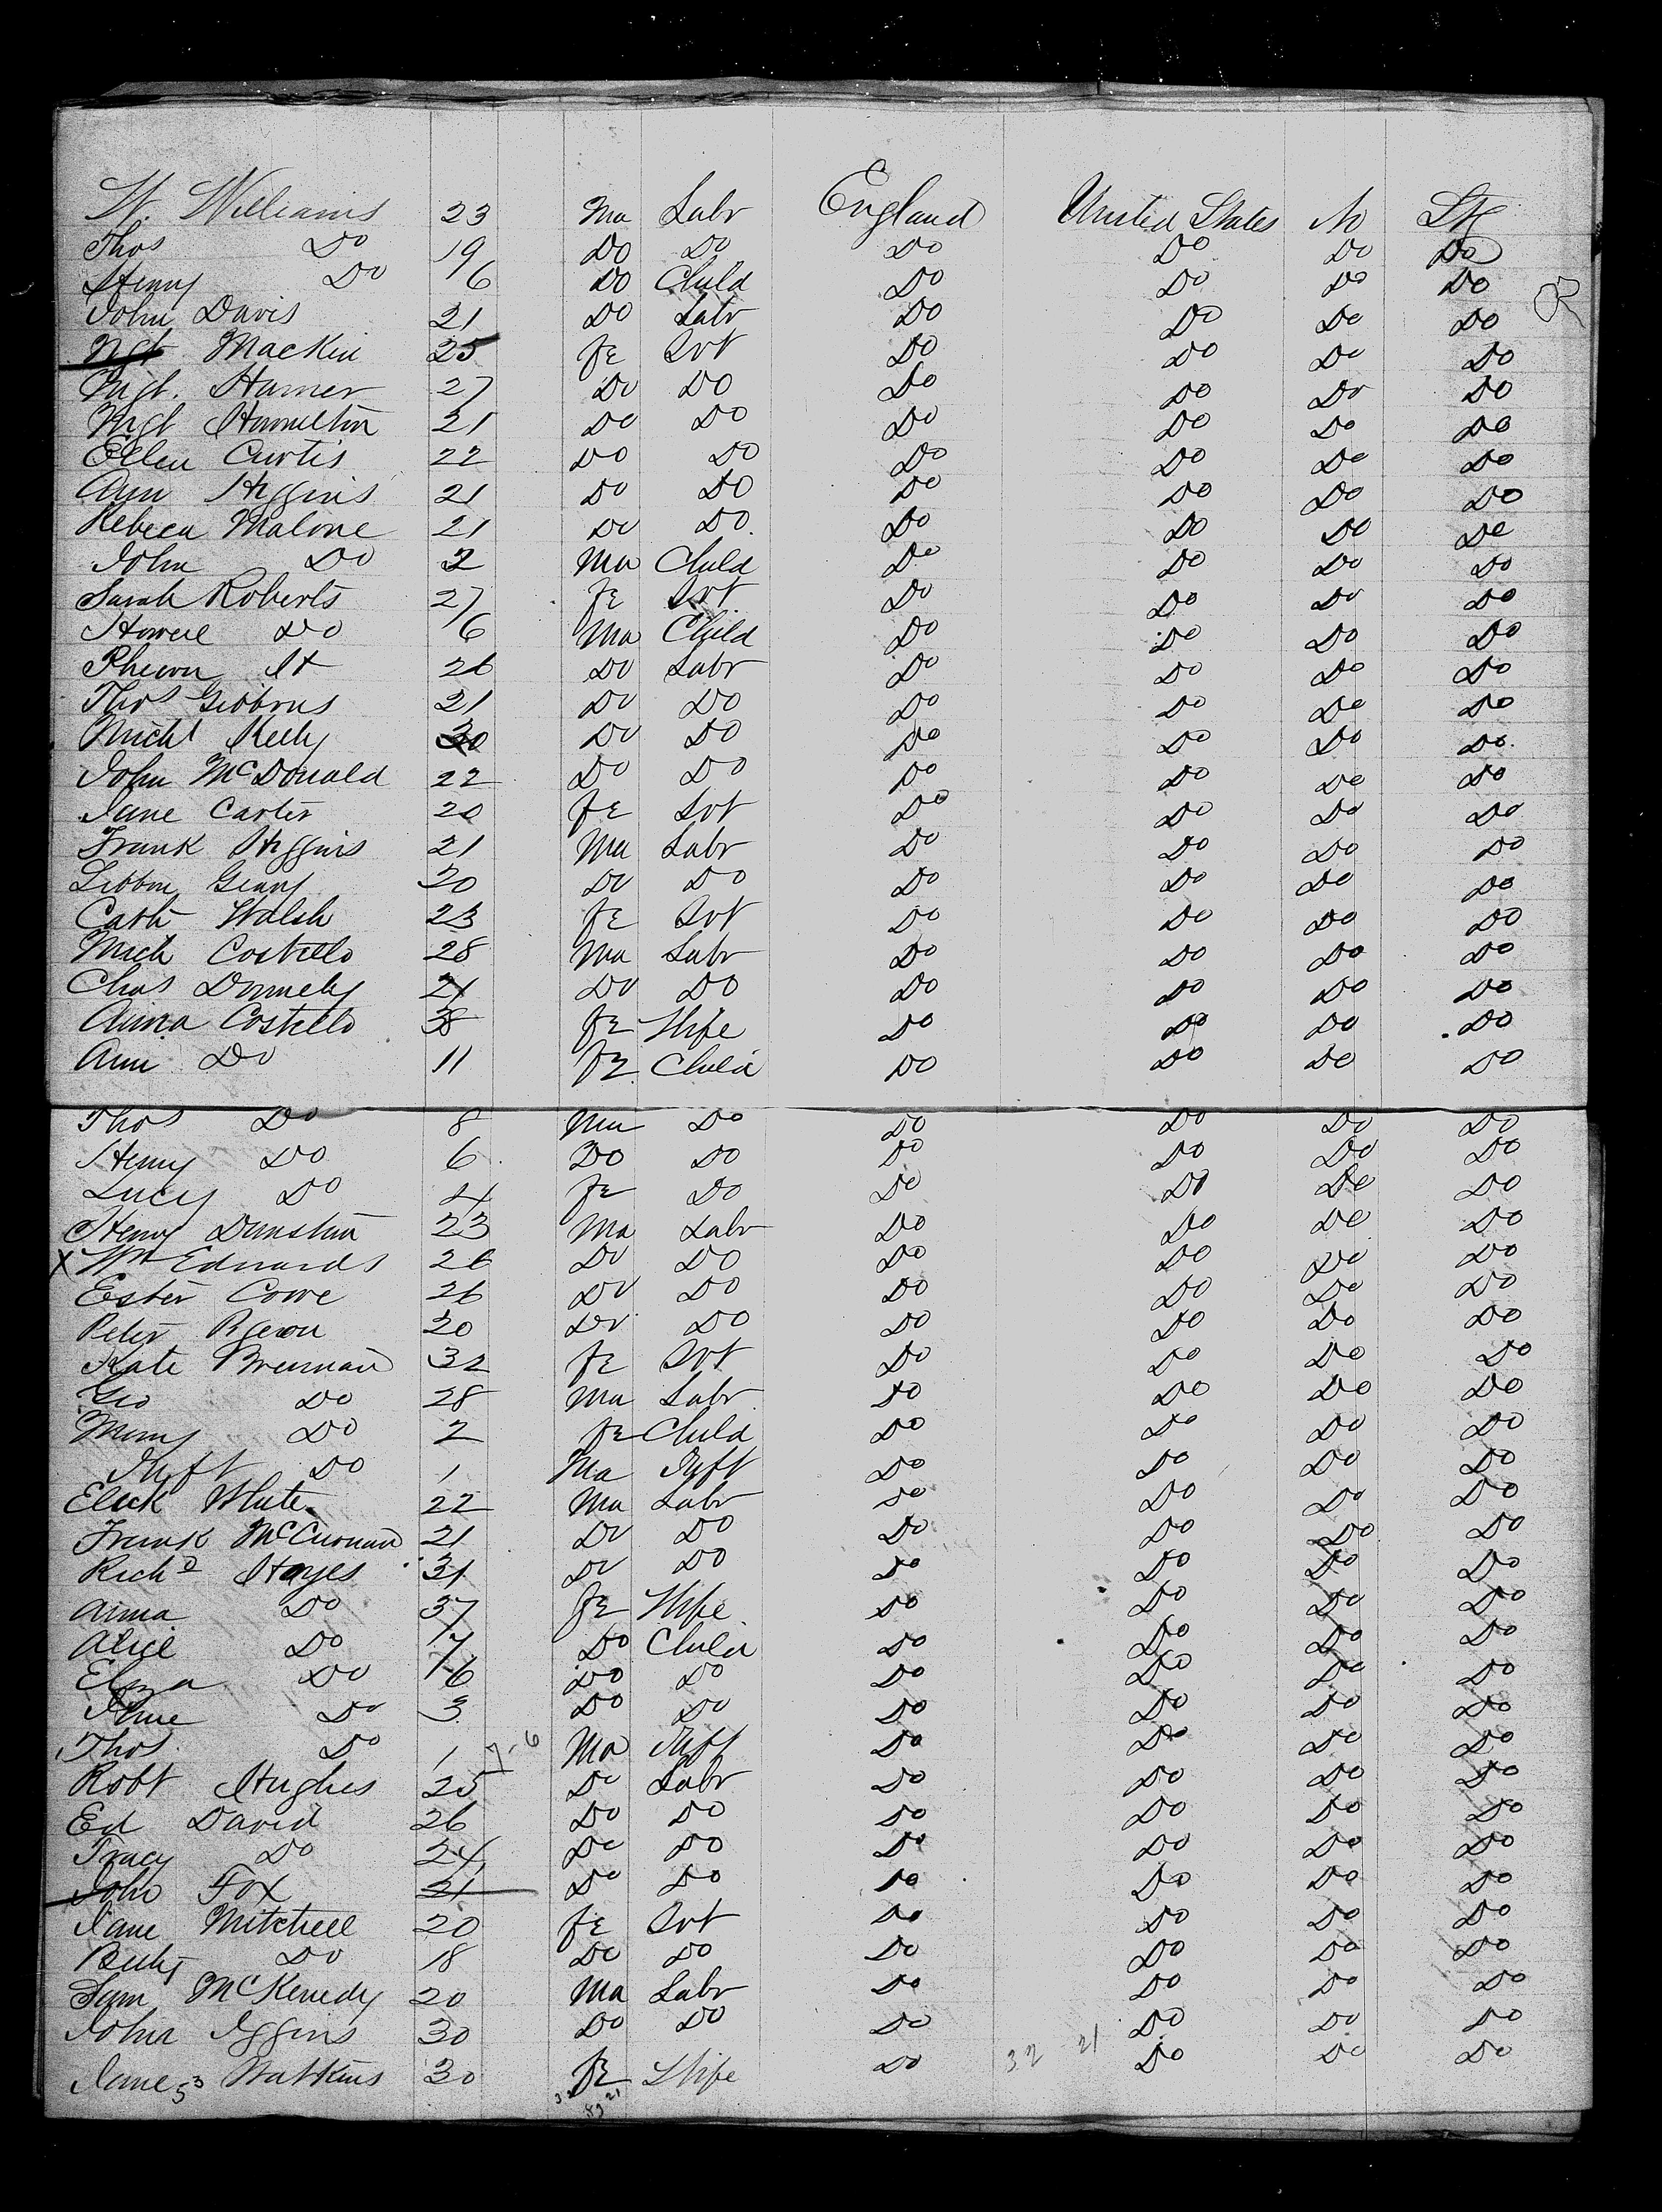 W. Williams 23 Ma Labr England United States No St
Thos Do 19 Do Do Do Do Do Do
Henry Do 6 Do Child Do Do Do Do
John Davis 21 Do Labr Do Do Do Do
Mgt Mackin 25 fe Svt Do Do Do Do
Mgt. Harner 27 Do Do Do Do Do Do
Mgt Hamilton 21 Do Do Do Do Do Do
Ellen Curtis 22 Do Do Do Do Do Do
Ann Higgins 21 Do Do Do Do Do Do
Rebeca Malone 21 Do Do Do Do Do Do
John Do 2 Ma Child Do Do Do Do
Sarah Roberts 27 fe Svt Do Do Do Do
Howell Do 6 Ma Child Do Do Do Do
26 Do Labr Do Do Do Do
Thos Gibbons 21 Do Do Do Do Do Do
Michl Kelly 30 Do Do Do Do Do Do
John McDonald 22 Do Do Do Do Do Do
Jane Carter 20 fe Svt Do Do Do Do
Frank Higgins 21 Ma Labr Do Do Do Do
20 Do Do Do Do Do Do
Cath Walsh 23 fe Svt Do Do Do Do
Mich Costello 28 Ma Labr Do Do Do Do
Chas Donnely 21 Do Do Do Do Do Do
Anna Costello 38 fe Wife Do Do Do Do
Ann Do 11 fe Child Do Do Do Do
Thos Do 8 Ma Do Do Do Do Do
Henry Do 6 Do Do Do Do Do Do
Lucy Do 4 fe Do Do Do Do Do
Henry Dunstan 23 Ma Labr Do Do Do Do
X Wm Edwards 26 Do Do Do Do Do Do
Ester Cowe 26 Do Do Do Do Do Do
Peter 20 Do Do Do Do Do Do
Kate Brennan 32 fe Svt Do Do Do Do
Geo Do 28 Ma Labr Do Do Do Do
Mary Do 2 fe Child Do Do Do Do
Inft Do 1 Ma Inft Do Do Do Do
Elick White 22 Ma Labr Do Do Do Do
Frank 21 Do Do Do Do Do Do
Richd Hayes 31 Do Do Do Do Do Do
Anna Do 37 fe Wife Do Do Do Do
Alice Do 7 Do Child Do Do Do Do
Eliza Do 6 Do Do Do Do Do Do
Jane Do 3 Do Do Do Do Do Do
Thos Do 1 7-6 Ma Inft Do Do Do Do
Robt Hughes 25 Do Labr Do Do Do Do
Ed David 26 Do Do Do Do Do Do
Tracy Do 24 Do Do Do Do Do Do
John Fox 21 Do Do Do Do Do Do
Jane Mitchell 20 fe Svt Do Do Do Do
Betty Do 18 Do Do Do Do Do Do
Sam McKenedy 20 Ma Labr Do Do Do Do
John Iggins 30 Do Do Do Do Do Do
32 21
Jane Watkins 30 fe Wife Do Do Do Do
53